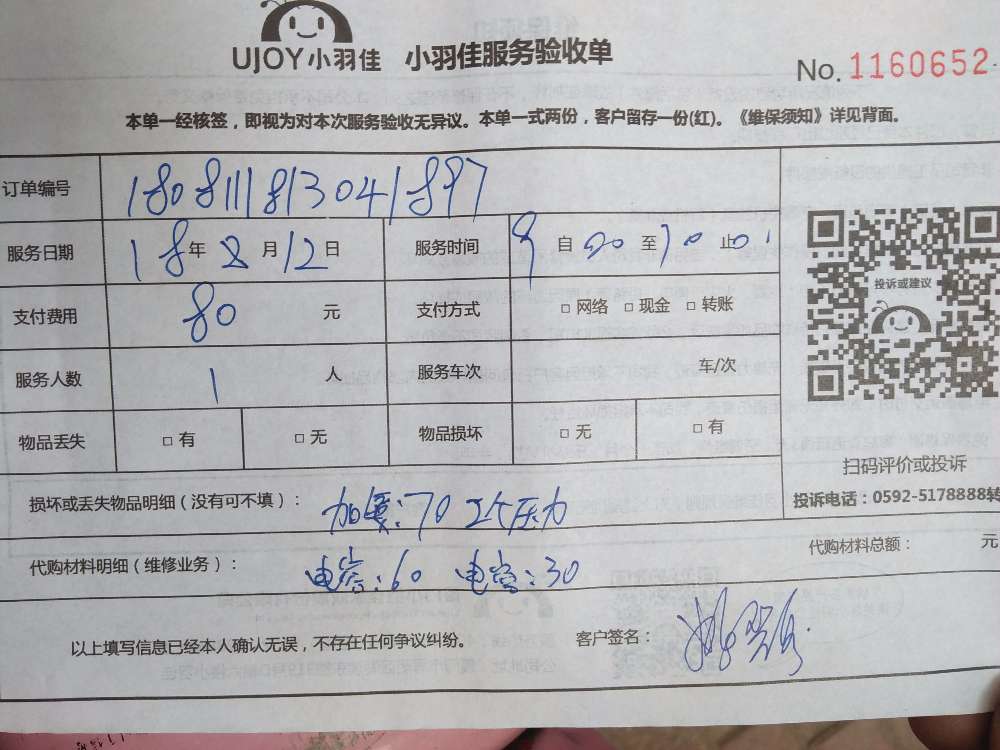 UJOY小羽佳 小羽佳服务验收单
No. 1160652
本单一经核签，即视为对本次服务验收无异议。本单一式两份，客户留存一份(红)。《维保须知》详见背面。
订单编号 1808111813041897
服务日期 18年8月12日 服务时间 9自00至10 止
支付费用 80 元 支付方式 □ 网络 □ 现金 □ 转账
投诉或建议
服务人数 1 人 服务车次 车/次
物品丢失 □ 有 □ 无 物品损坏 □ 无 □ 有
扫码评价或投诉
投诉电话：0592-5178888转
损坏或丢失物品明细（没有可不填）： 加氟:70 2个压力
代购材料明细（维修业务）： 电容:60 电容:30
代购材料总额： 元
以上填写信息已经本人确认无误，不存在任何争议纠纷。 客户签名：